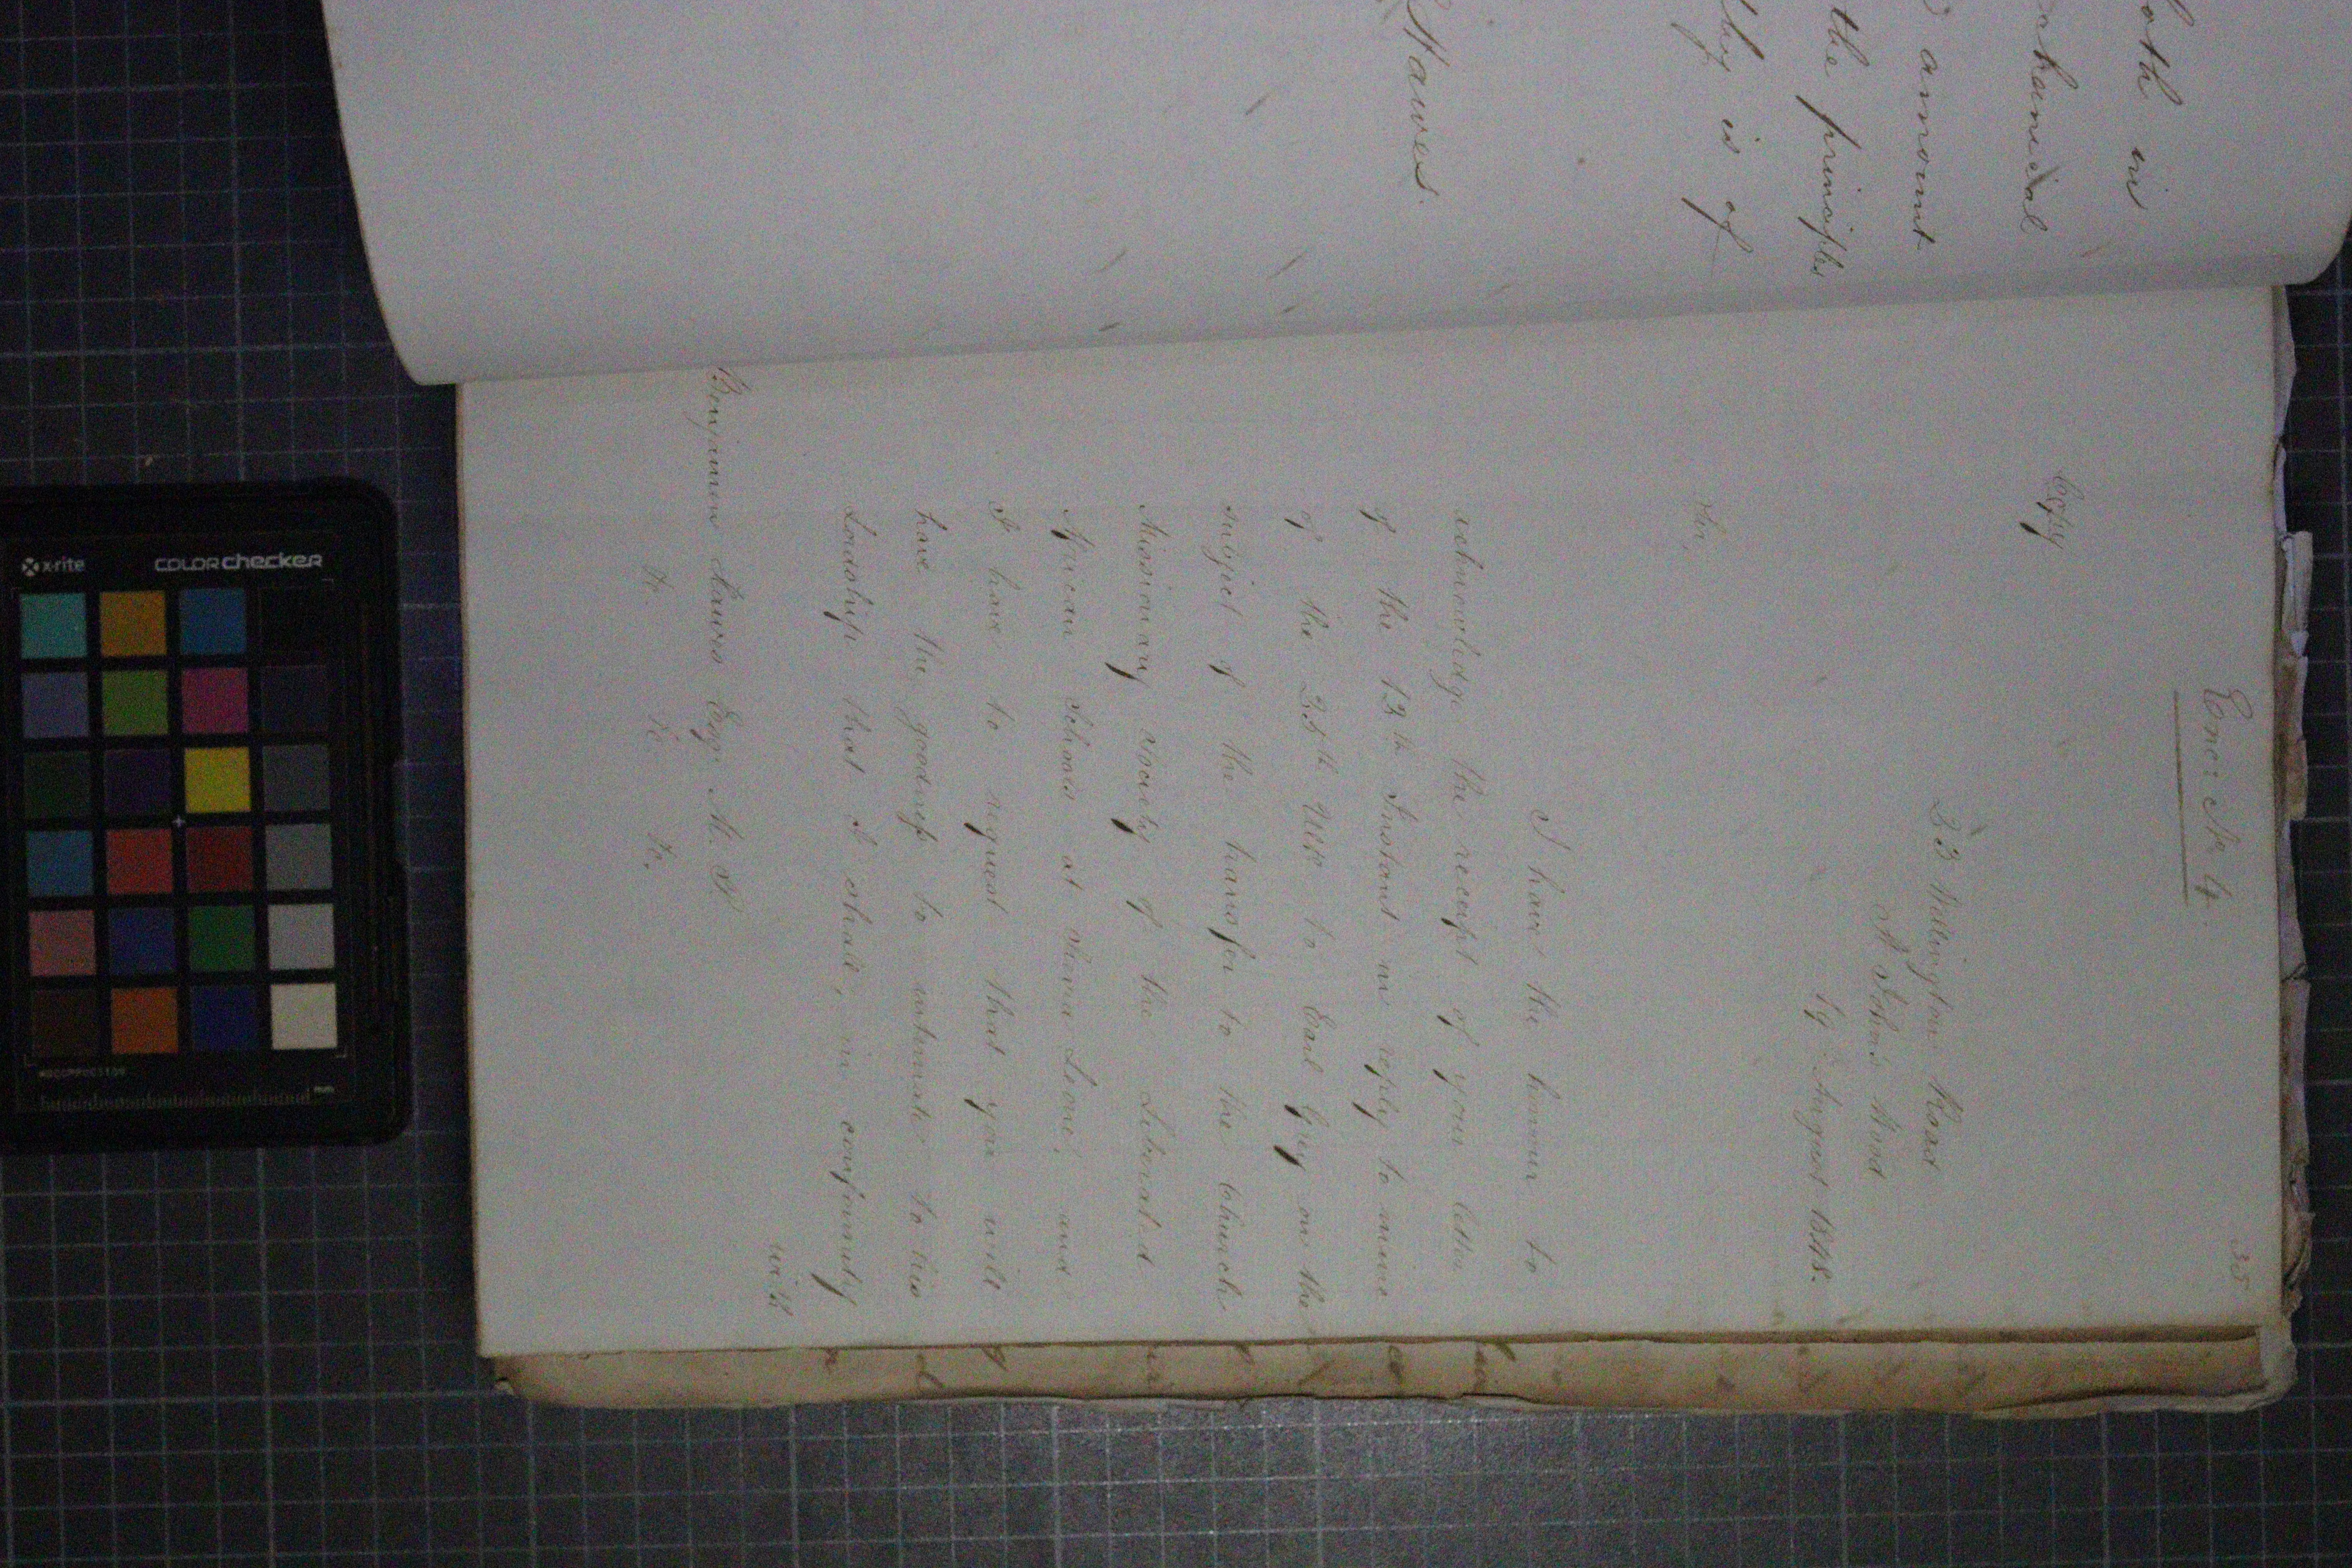 oth in
chanical
amount
the principles
thy is of
Hawes.
35
Encl: No 4.
Copy
23 Wellington Road
St John's Wood
19 August 1848.
Sir,
I have the honour to
acknowledge the receipt of your letter
of the 13th Instant in reply to mine
of the 25th Ulto to Earl Grey on the
subject of the transfer to the Church
Missionary Society of the Liberated
African Schools at Sierra Leone, and
I have to request that you will
have the goodness to intimate to his
Lordship that I shall, in conformity
with
Benjamin Hawes Esqr M. P.
&c. &c. &c.
x-rite
colorchecker
mm